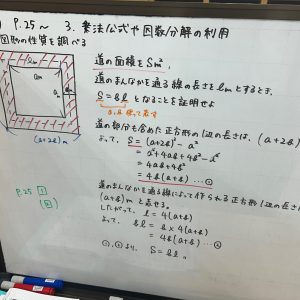 P.25〜 3. 乗法公式や因数分解の利用
図形の性質を調べる
道の面積をSm²,
道のまんなかを通る線の長さをlmとするとき,
S=al となることを証明せよ
道の部分も含めた正方形の1辺の長さは, (a+2b)
よって, S=(a+2b)²-a²
=a²+4ab+4b²-a²
=4ab+4b²
=4b(a+b) …①
道のまんなかを通る線によって作られる正方形の1辺の長さ
(a+b)mと表せる。
したがって, l=4(a+b)
=4b(a+b) …②
①,②より,
lm
am
(a+2b)m
P.25 1
2